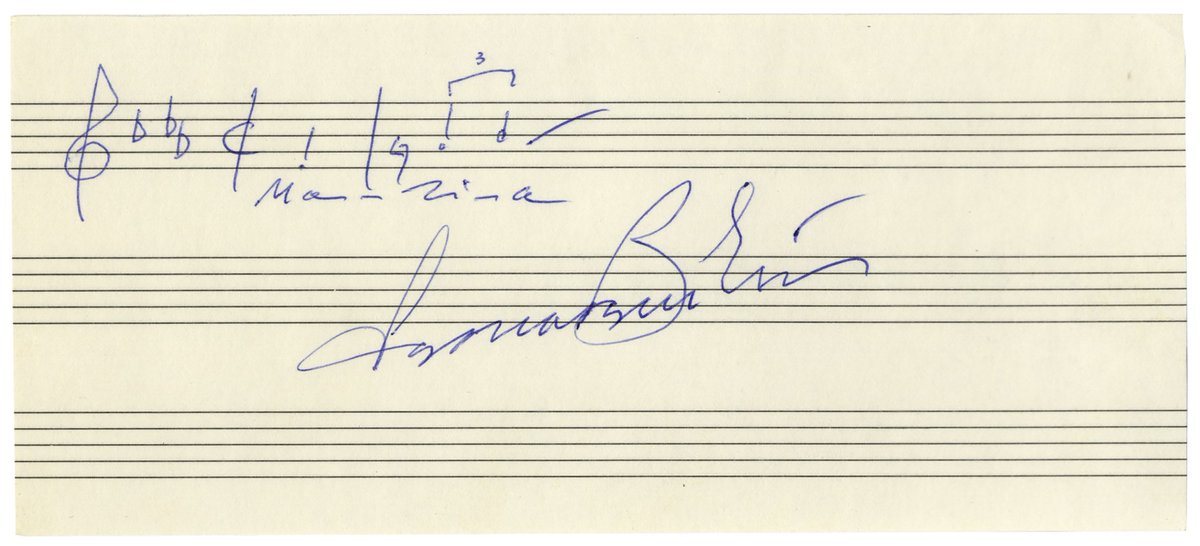 3
Ma-ri-a
Leonard Bernstein